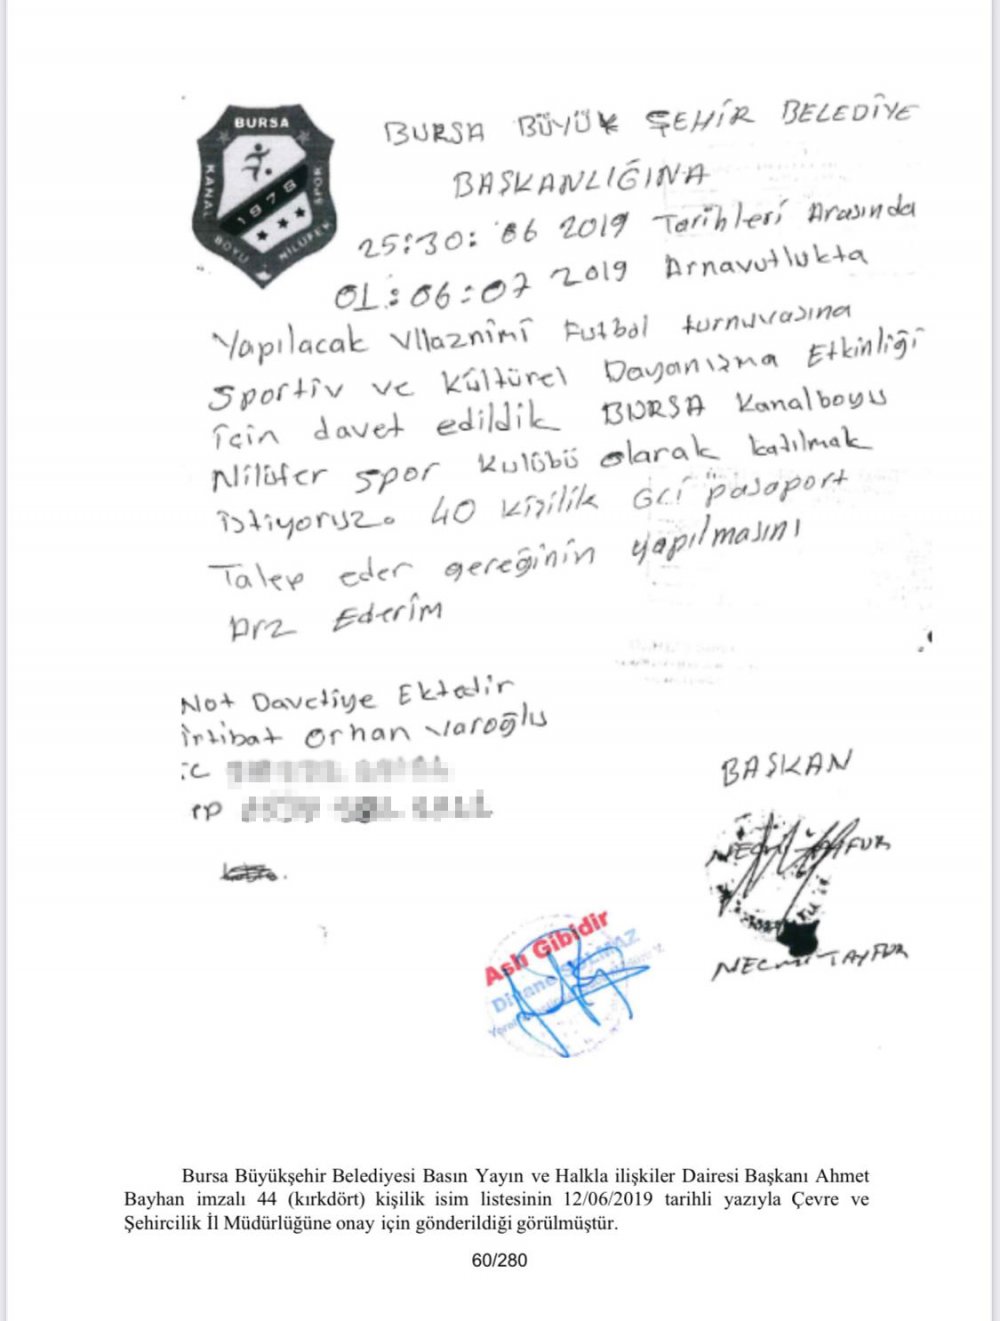 BURSA
KANAL
SPOR
1978
BOYU
NİLÜFER
BURSA BÜYÜK ŞEHİR BELEDİYE
BAŞKANLIĞINA
25:30: 06 2019 Tarihleri Arasında
01:06:07 2019 Arnavutlukta
Yapılacak Vllaznimi Futbol turnuvasına
Sportiv ve Kültürel Dayanışma Etkinliği
için davet edildik BURSA Kanalboyu
Nilüfer spor kulübü olarak katılmak
istiyoruz. 40 Kişilik Gri pasaport
Talep eder gereğinin yapılmasını
Arz Ederim
Not Davetiye Ektedir
İrtibat Orhan Varoğlu
BAŞKAN
NECMİ TAYFUR
NECMİ TAYFUR
Aslı Gibidir
Bursa Büyükşehir Belediyesi Basın Yayın ve Halkla ilişkiler Dairesi Başkanı Ahmet
Bayhan imzalı 44 (kırkdört) kişilik isim listesinin 12/06/2019 tarihli yazıyla Çevre ve
Şehircilik İl Müdürlüğüne onay için gönderildiği görülmüştür.
60/280